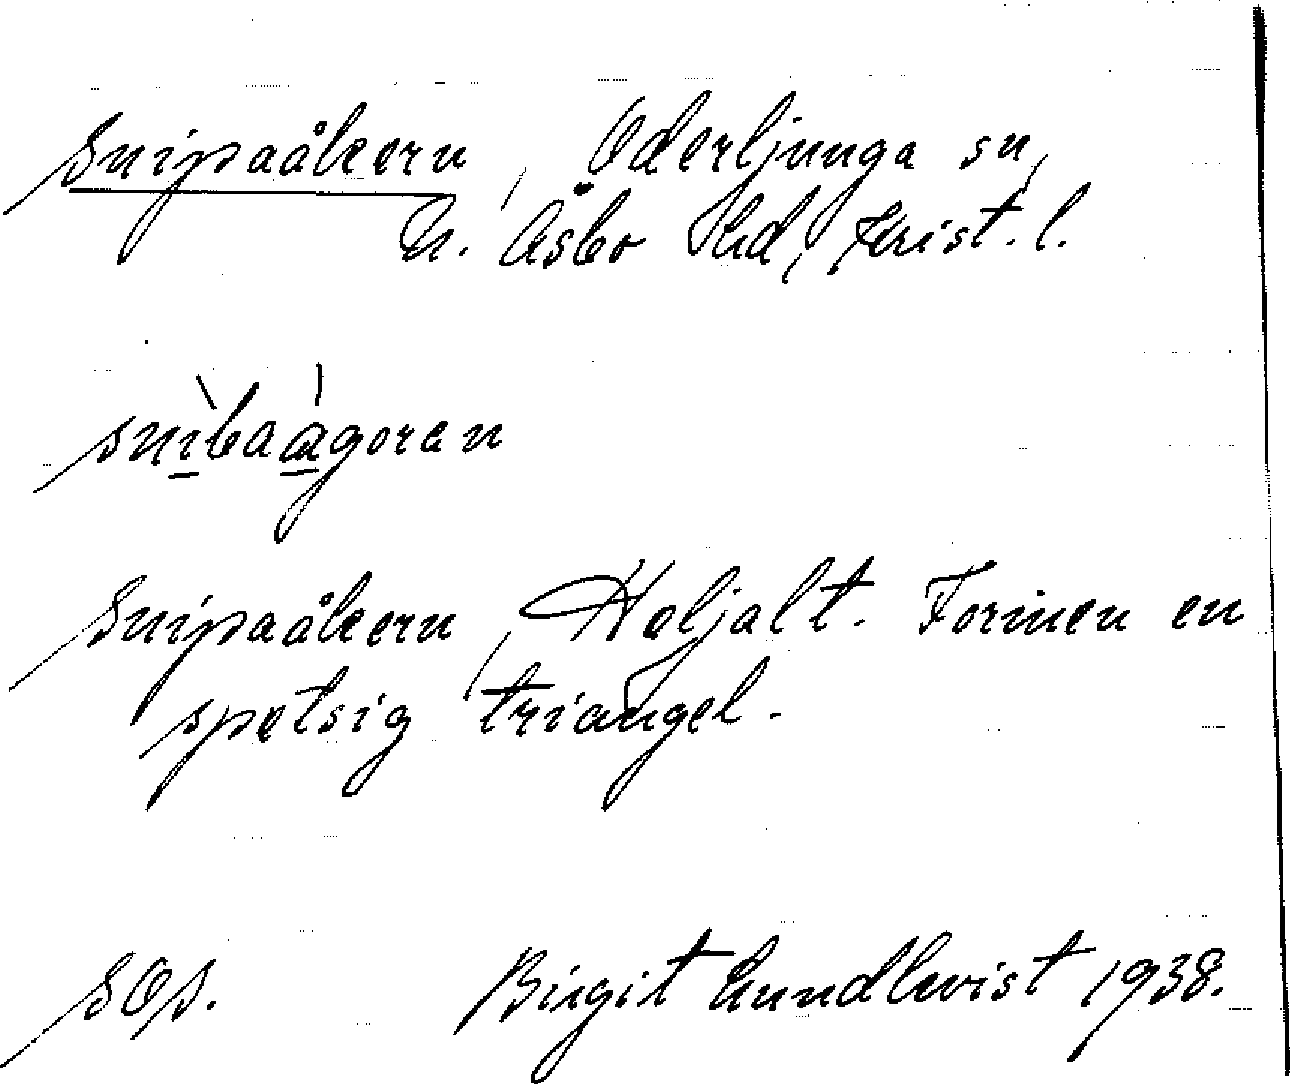 Snipaåkern, Oderljunga sn,
N. Åsbo Hd, Krist. l.
snìbaágoran
Snipaåkern, Heljalt. Formen en
spetsig triangel.
SOS. Birgit Lundkvist 1938.